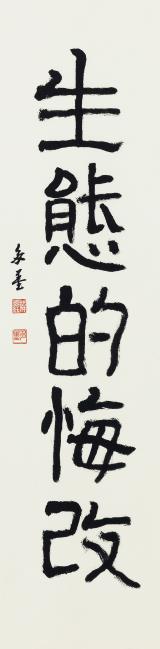 生態的悔改